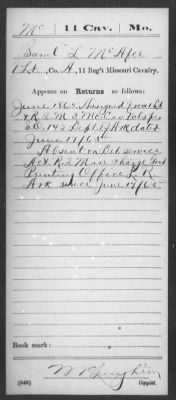 Mc | 11 Cav. | Mo.
Sam'l L McAfee
1 Lt., Co. A, 11 Reg't Missouri Cavalry.
Appears on Returns as follows:
June 1865 Assigned from 1 Lt
& R.Q.M. 3 Mo Cav to
S.O. 142 Dept Ark dated
June 17/65
Absent on Det service
Act R.Q.M. in charge Post
Printing Office L.R.
Ark since June 17/65
Book mark:
(646)
Copyist.